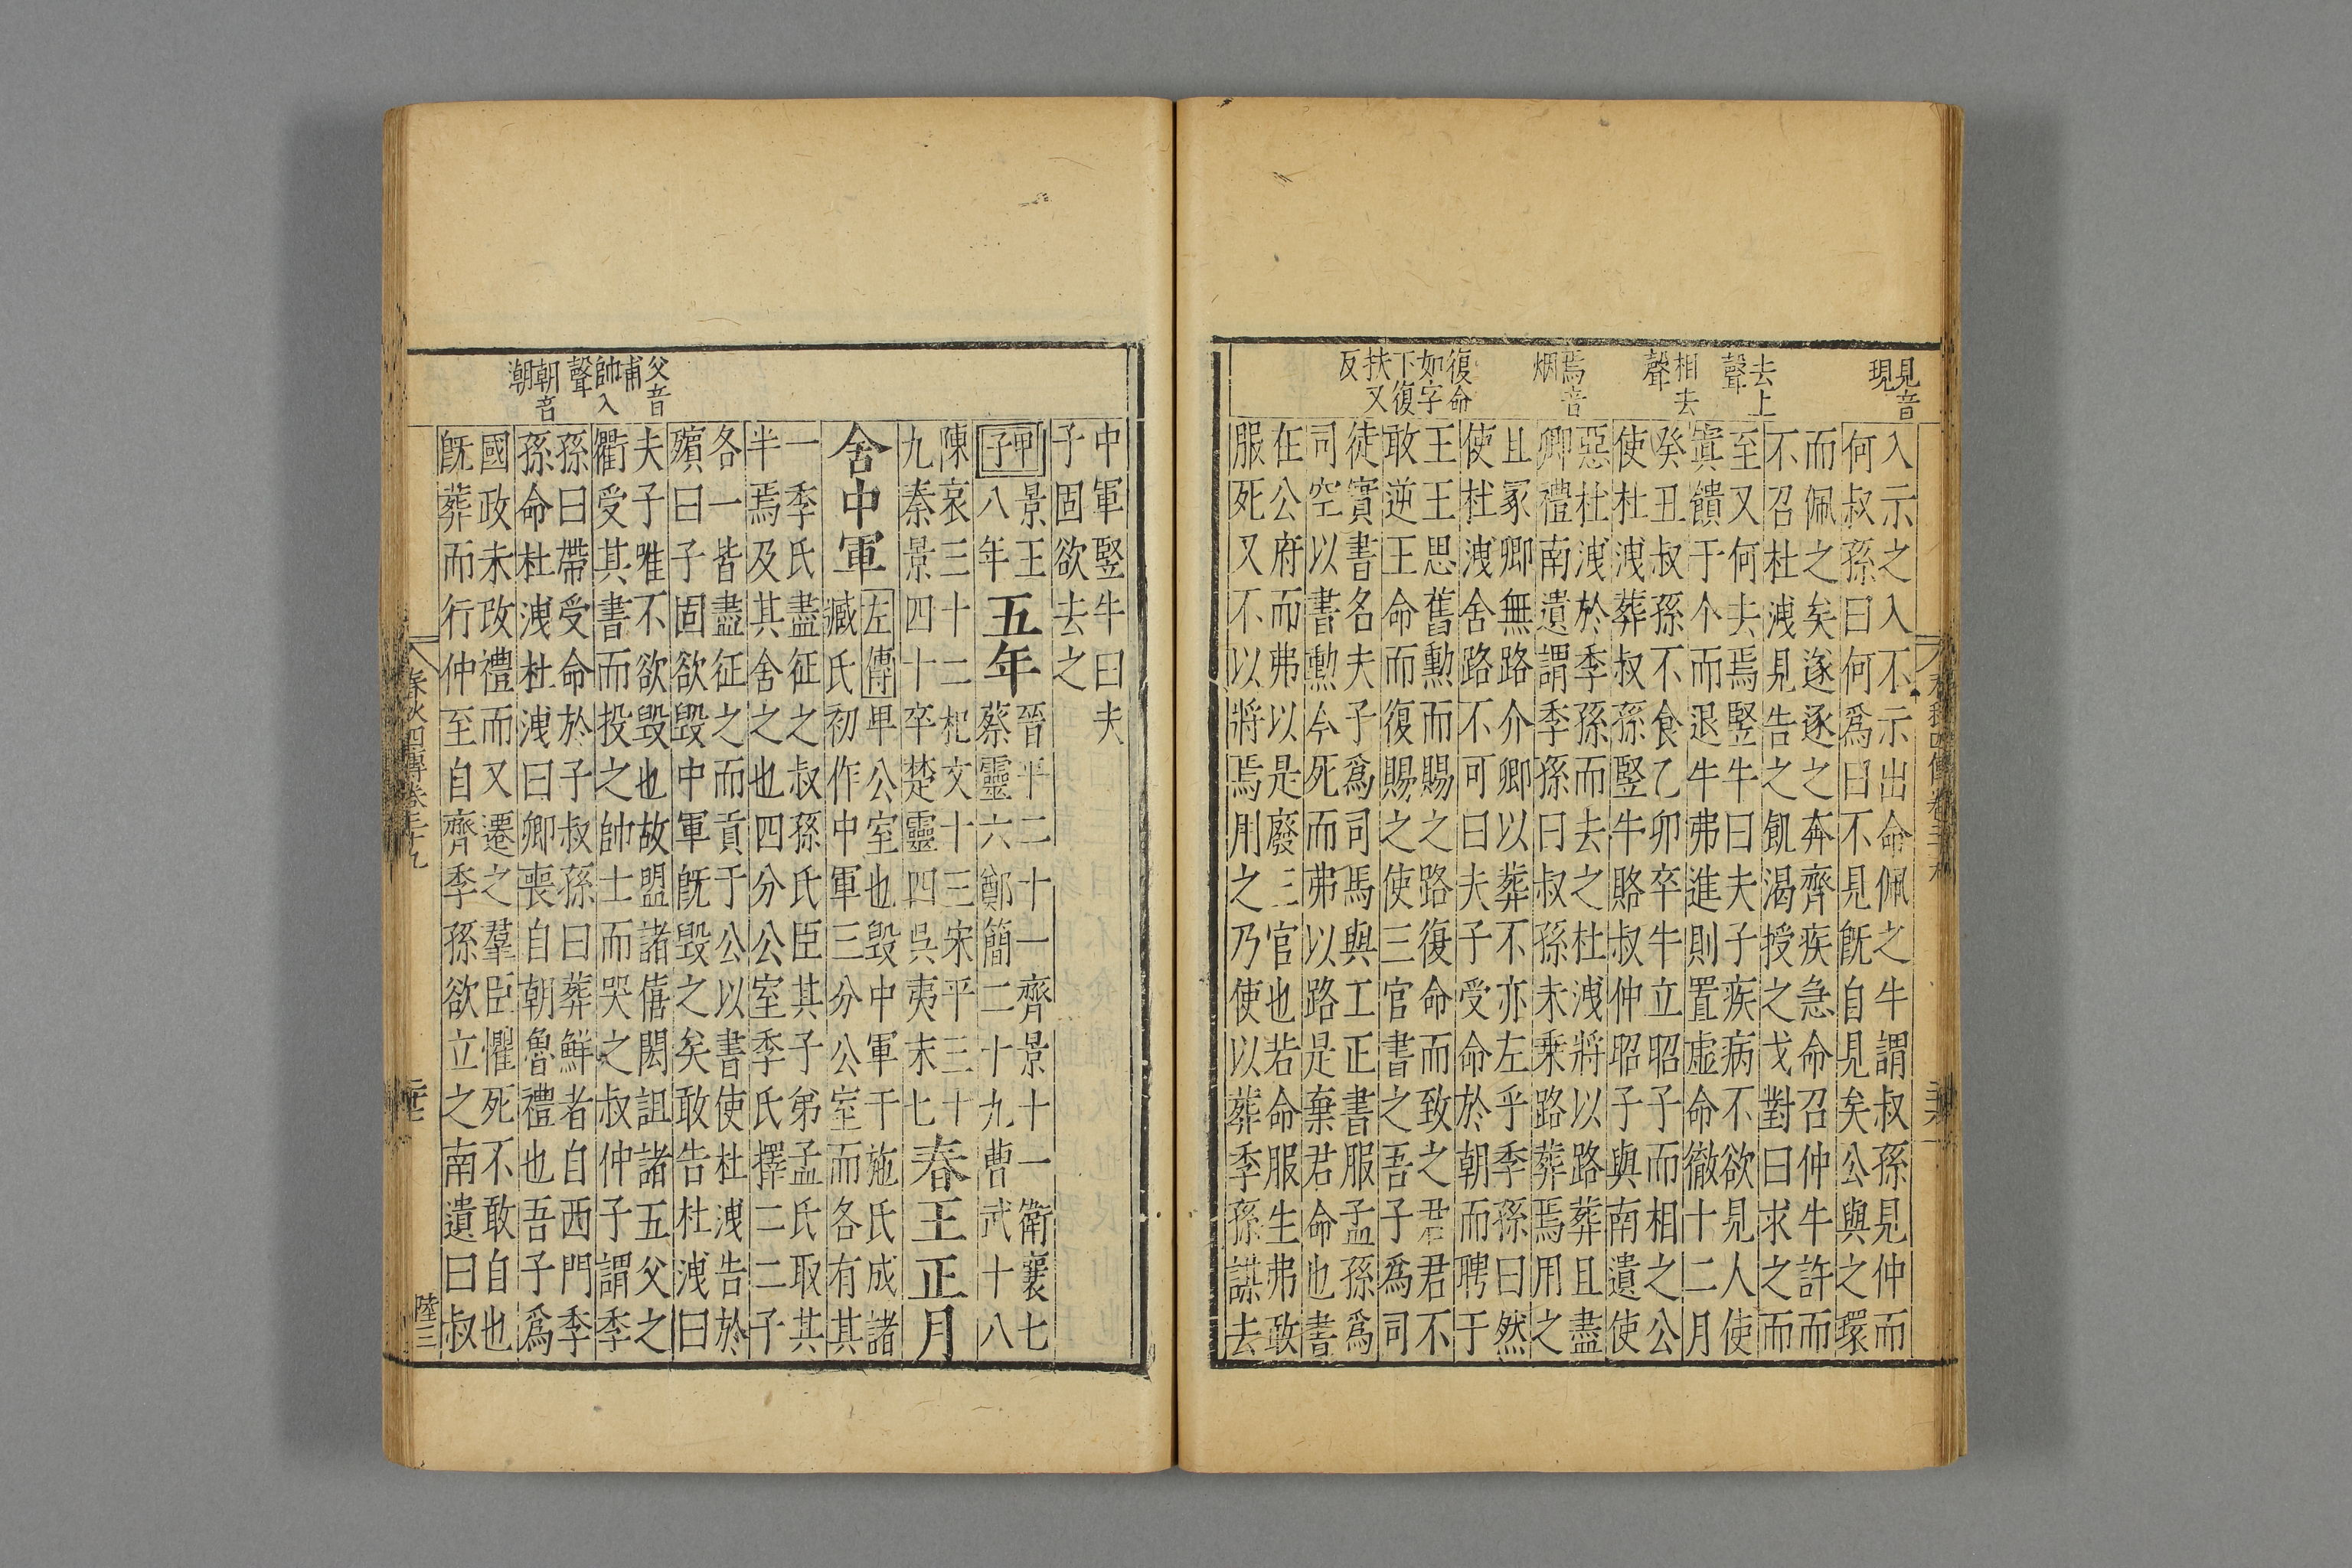 見音
現
去上
聲
相去
聲
焉音
烟
復命
如字
下復
扶又
反
入示之入不示出命佩之牛謂叔孫見仲而
何叔孫曰何爲曰不見旣自見矣公與之環
而佩之矣遂逐之奔齊疾急命召仲牛許而
不召杜洩見告之飢渴授之戈對曰求之而
至又何去焉豎牛曰夫子疾病不欲見人使
寘饋于个而退牛弗進則置虛命徹十二月
癸丑叔孫不食乙卯卒牛立昭子而相之公
使杜洩葬叔孫豎牛賂叔仲昭子與南遺使
惡杜洩於季孫而去之杜洩將以路葬且盡
卿禮南遺謂季孫曰叔孫未乗路葬焉用之
且冢卿無路介卿以葬不亦左乎季孫曰然
使杜洩舍路不可曰夫子受命於朝而聘于
王王思舊勲而賜之路復命而致之君君不
敢逆王命而復賜之使三官書之吾子爲司
徒實書名夫子爲司馬與工正書服孟孫爲
司空以書勲今死而弗以路是棄君命也書
在公府而弗以是廢三官也若命服生弗敢
服死又不以將焉用之乃使以葬季孫謀去
父音
甫
帥入
聲
朝音
潮
中軍豎牛曰夫
子固欲去之
甲子
景王
八年
五年
晉平二十一齊景十一衛襄七
蔡靈六鄭簡二十九曹武十八
陳哀三十二杞文十三宋平三十
九秦景四十卒楚靈四吳夷末七
春王正月
舍中軍
左傳
卑公室也毀中軍于施氏成諸
臧氏初作中軍三分公室而各有其
一季氏盡征之叔孫氏臣其子弟孟氏取其
半焉及其舍之也四分公室季氏擇二二子
各一皆盡征之而貢于公以書使杜洩告於
殯曰子固欲毀中軍旣毀之矣敢告杜洩曰
夫子唯不欲毀也故盟諸僖閎詛諸五父之
衢受其書而投之帥士而哭之叔仲子謂季
孫曰帶受命於子叔孫曰葬鮮者自西門季
孫命杜洩杜洩曰卿喪自朝魯禮也吾子爲
國政未改禮而又遷之羣臣懼死不敢自也
旣葬而行仲至自齊季孫欲立之南遺曰叔
春秋四傳卷三十九
陸三